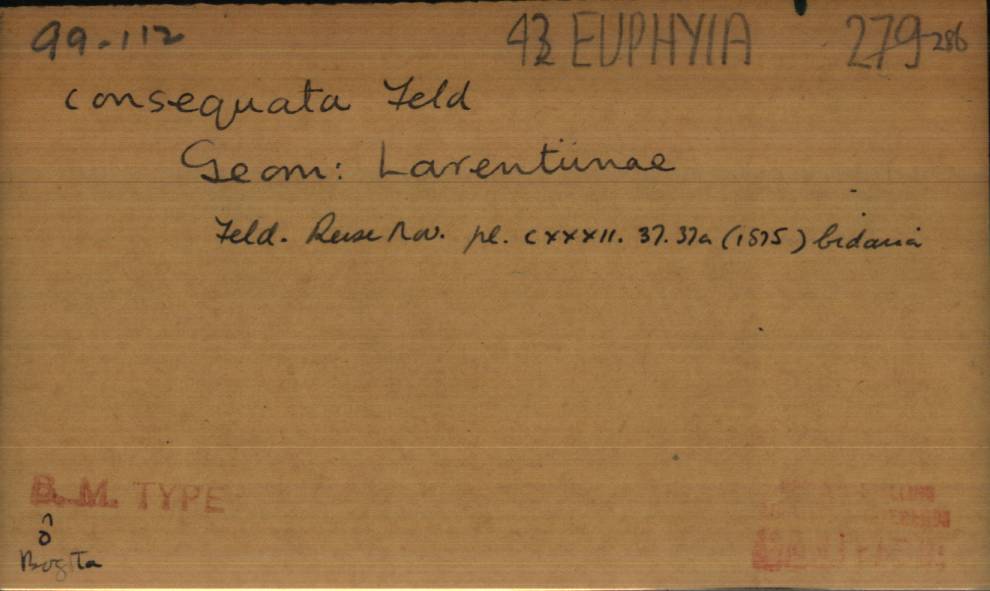 99-112 43 EUPHYIA 279-286
consequata Feld
Geom: Larentiinae
Feld. Reise Nov. pl. cxxxii. 37.37a (1875) Cidaria
B. M. TYPE
♂
Bogota